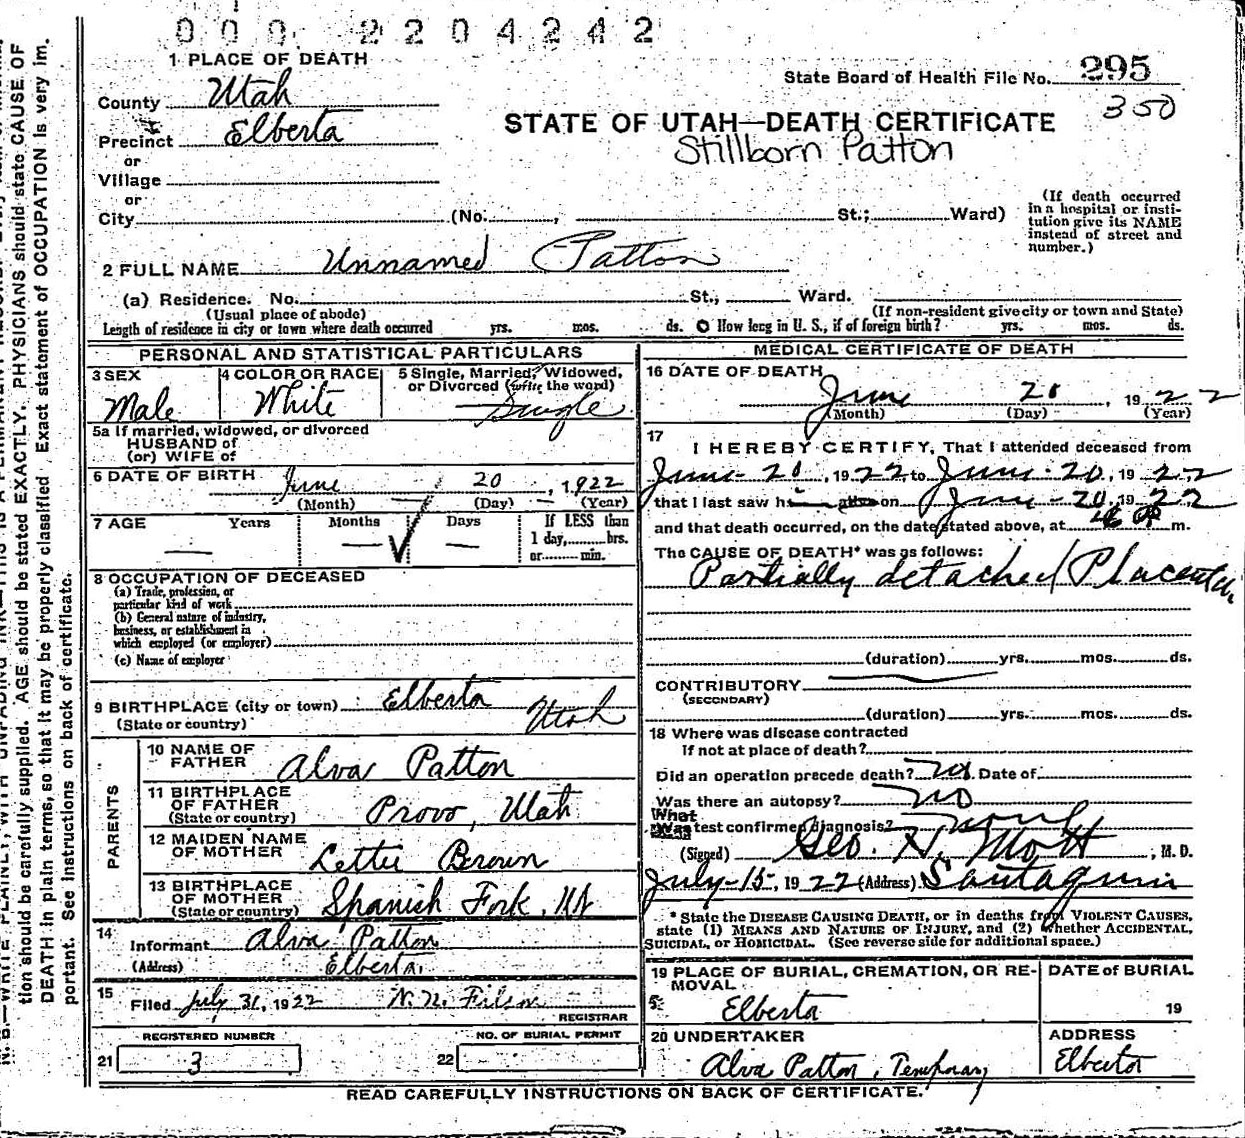 000 2204242
1 PLACE OF DEATH
State Board of Health File No. 295
County Utah
350
STATE OF UTAH—DEATH CERTIFICATE
Precinct Elberta
Stillborn Patton
or
Village
or
City (No. , St.; Ward)
(If death occurred
in a hospital or insti-
tution give its NAME
instead of street and
number.)
2 FULL NAME Unnamed Patton
(a) Residence. No. St., Ward.
(Usual place of abode) (If non-resident give city or town and State)
Length of residence in city or town where death occurred yrs. mos. ds. How long in U. S., if of foreign birth? yrs. mos. ds.
PERSONAL AND STATISTICAL PARTICULARS
3 SEX
Male
4 COLOR OR RACE
White
5 Single, Married, Widowed,
or Divorced (write the word)
Single
5a If married, widowed, or divorced
HUSBAND of
(or) WIFE of
6 DATE OF BIRTH June 20, 1922
(Month) (Day) (Year)
7 AGE Years Months Days If LESS than
1 day, hrs.
or min.
8 OCCUPATION OF DECEASED
(a) Trade, profession, or
particular kind of work
(b) General nature of industry,
business, or establishment in
which employed (or employer)
(c) Name of employer
9 BIRTHPLACE (city or town) Elberta
(State or country) Utah
PARENTS
10 NAME OF
FATHER Alva Patton
11 BIRTHPLACE
OF FATHER
(State or country) Provo, Utah
12 MAIDEN NAME
OF MOTHER Lettie Brown
13 BIRTHPLACE
OF MOTHER
(State or country) Spanish Fork, Ut
14
Informant Alva Patton
(Address) Elberta.
15
Filed July 31, 1922 N. N.
REGISTRAR
REGISTERED NUMBER
21 3
NO. OF BURIAL PERMIT
22
MEDICAL CERTIFICATE OF DEATH
16 DATE OF DEATH
June 20, 1922
(Month) (Day) (Year)
17
I HEREBY CERTIFY, That I attended deceased from
June-20, 1922, to June-20, 1922
that I last saw h on June-20, 1922
and that death occurred, on the date stated above, at m.
The CAUSE OF DEATH* was as follows:
Partially detached Placenta.
(duration) yrs. mos. ds.
CONTRIBUTORY
(SECONDARY)
(duration) yrs. mos. ds.
18 Where was disease contracted
if not at place of death?
Did an operation precede death? no. Date of
Was there an autopsy? no
What
test confirmed diagnosis? none
(Signed) Geo. H. Mott, M. D.
July-15, 1922 (Address) Santaquin
* State the DISEASE CAUSING DEATH, or in deaths from VIOLENT CAUSES,
state (1) MEANS AND NATURE OF INJURY, and (2) whether ACCIDENTAL,
SUICIDAL, or HOMICIDAL. (See reverse side for additional space.)
19 PLACE OF BURIAL, CREMATION, OR RE-
MOVAL
Elberta
DATE of BURIAL
19
20 UNDERTAKER
Alva Patton, Temporary
ADDRESS
Elberta
READ CAREFULLY INSTRUCTIONS ON BACK OF CERTIFICATE.
tion should be carefully supplied. AGE should be stated EXACTLY. PHYSICIANS should state CAUSE OF
DEATH in plain terms, so that it may be properly classified. Exact statement of OCCUPATION is very im-
portant. See instructions on back of certificate.